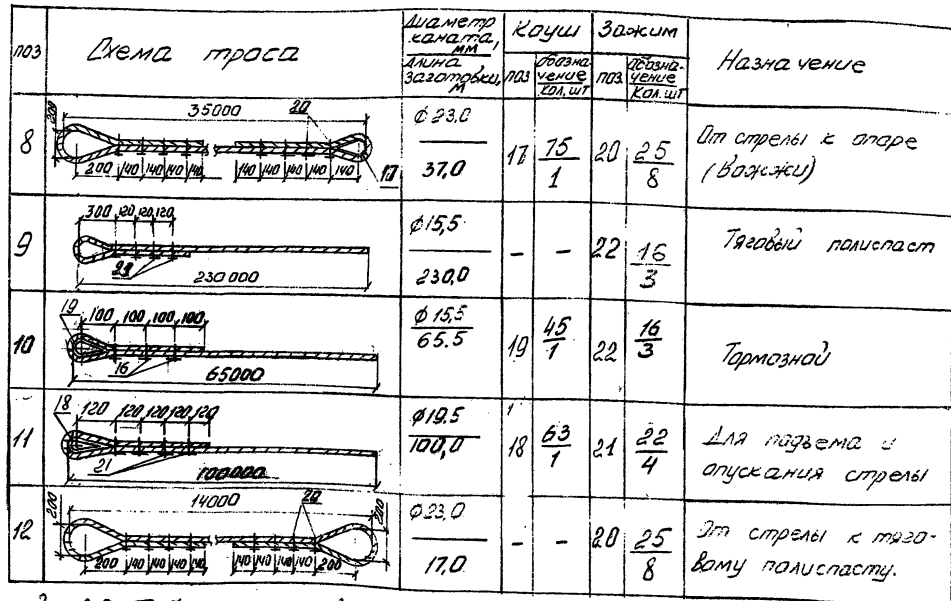 поз
Схема троса
Диаметр каната, мм
Длина заготовки, м
Коуш
Зажим
поз
обозначение
кол, шт
поз
обозначение
кол. шт
Назначение
8
200
35000
20
200 140 140 140 140
140 140 140 140 140
17
ф 23,0
37,0
17
75
1
20
25
8
От стрелы к опаре
(Вожжи)
9
300 120 120 120
22
230 000
ф15,5
230,0
-
-
22
16
3
Тяговый полиспаст
10
19
100 100 100 100
16
65000
ф 15,5
65.5
19
45
1
22
16
3
Тормозной
11
18
120 120 120 120 120
21
100000
ф19.5
100,0
18
63
1
21
22
4
Для подъема и
опускания стрелы
12
200
14000
20
200
200 140 140 140 140
140 140 140 140 200
ф23,0
17,0
-
-
20
25
8
От стрелы к тяго-
вому полиспасту.